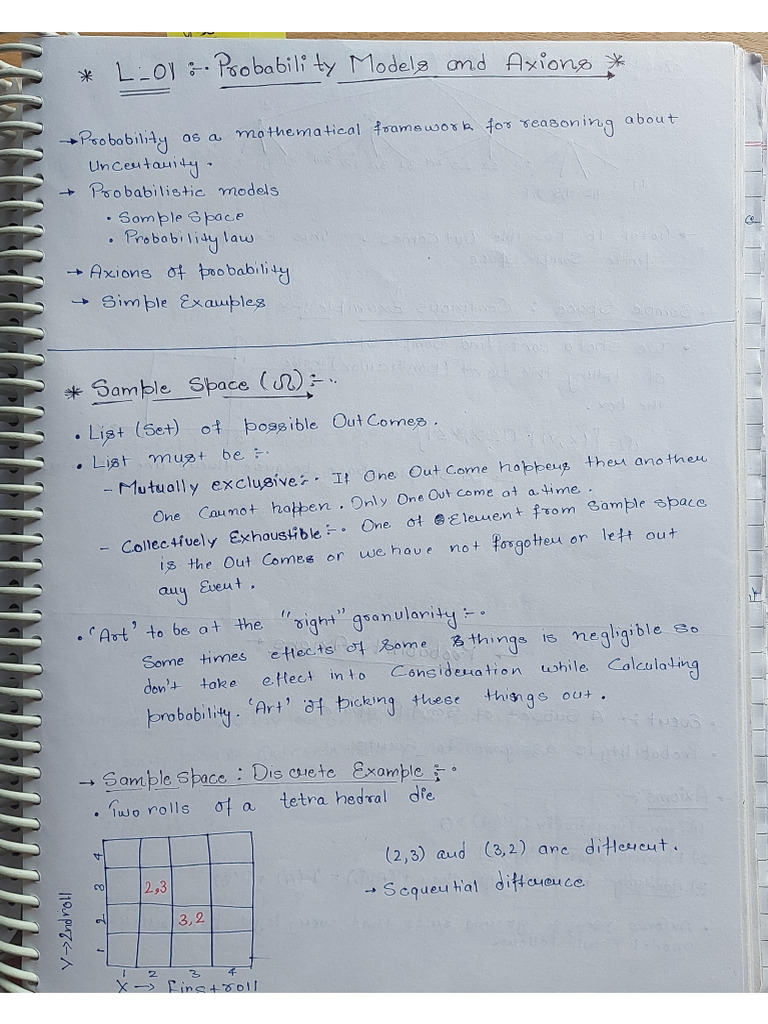 * L-01 :- Probability Models and Axions *
→ Probability as a mathematical framework for reasoning about
Uncertainity.
→ Probabilistic models
• Sample Space
• Probability law
→ Axions of probability
→ Simple Examples
* Sample Space (Ω) :-
• List (Set) of possible OutComes.
• List must be :-
- Mutually exclusive :- If One OutCome happens then another
One Cannot happen. Only One Outcome at a time.
- Collectively Exhaustible :- One of Element from Sample space
is the OutComes or we have not forgotten or left out
any Event.
• 'Art' to be at the "right" granularity :-
Some times effects of some things is negligible so
don't take effect into Consideration while Calculating
probability. 'Art' of picking these things out.
→ Sample Space : Discrete Example :-
• Two rolls of a tetrahedral die
(2,3) and (3,2) are different.
→ Sequential difference
4
3
2
1
2,3
3,2
Y → 2nd roll
1 2 3 4
X → First roll